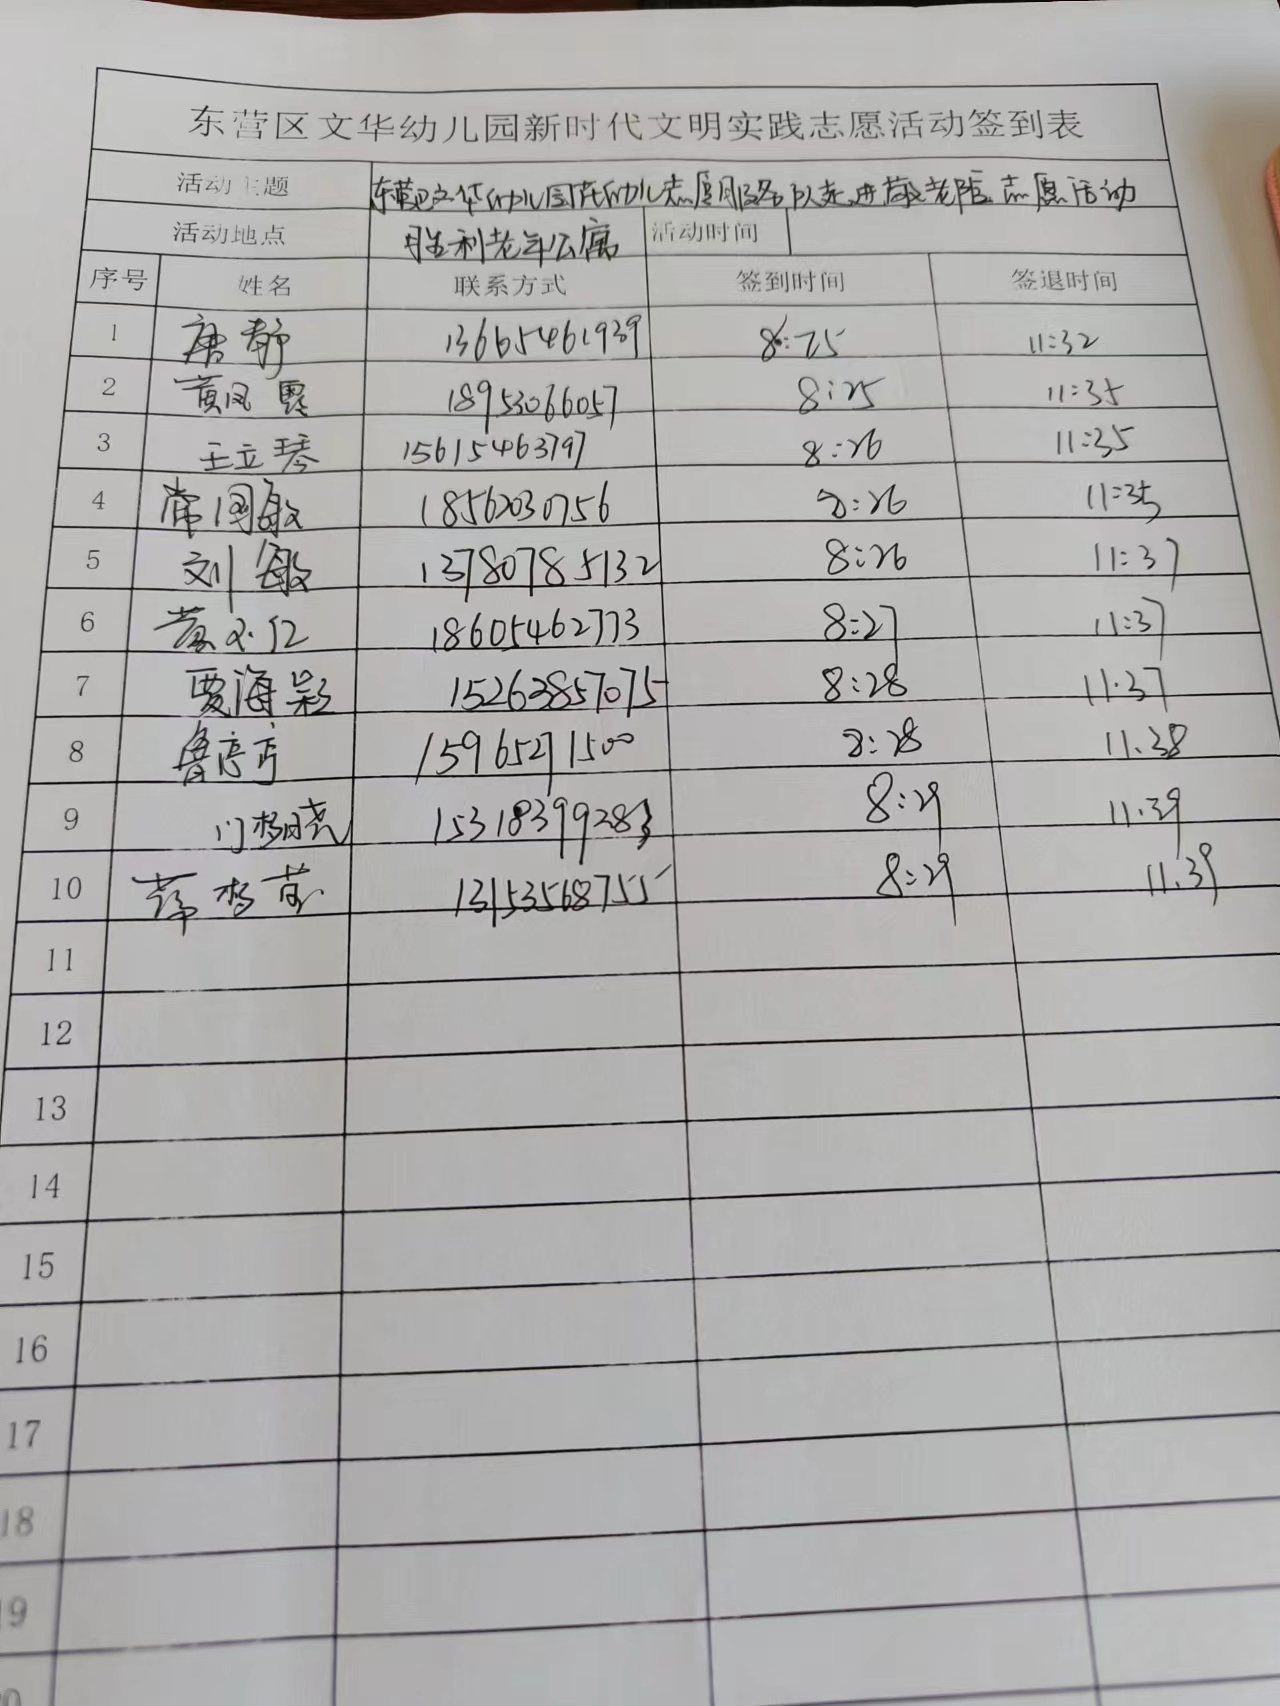 东营区文华幼儿园新时代文明实践志愿活动签到表
活动主题 东营区文华幼儿园 幼儿志愿服务队走进敬老院志愿活动
活动地点 胜利老年公寓 活动时间
序号 姓名 联系方式 签到时间 签退时间
1 唐静 13665461939 8:25 11:32
2 黄凤霞 18953066057 8:25 11:35
3 王立琴 15615463797 8:26 11:35
4 常国敏 18562030756 8:26 11:35
5 刘敏 13780785132 8:26 11:37
6 18605462773 8:27 11:37
7 贾海彩 15263857075 8:28 11.37
8 鲁亭亭 15965271500 8:28 11.38
9 门杨晓 15318399283 8:29 11.39
10 薛 13153568755 8:29 11.39
11
12
13
14
15
16
17
18
19